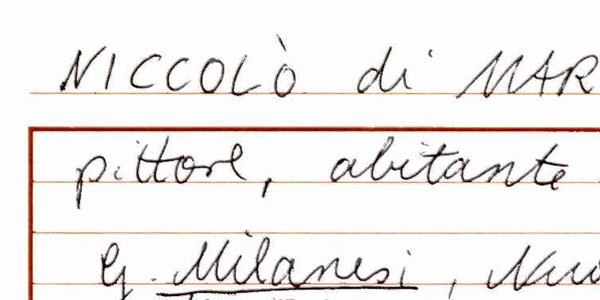 NICCOLÒ di MAR
pittore, abitante
G. Milanesi, Nuo